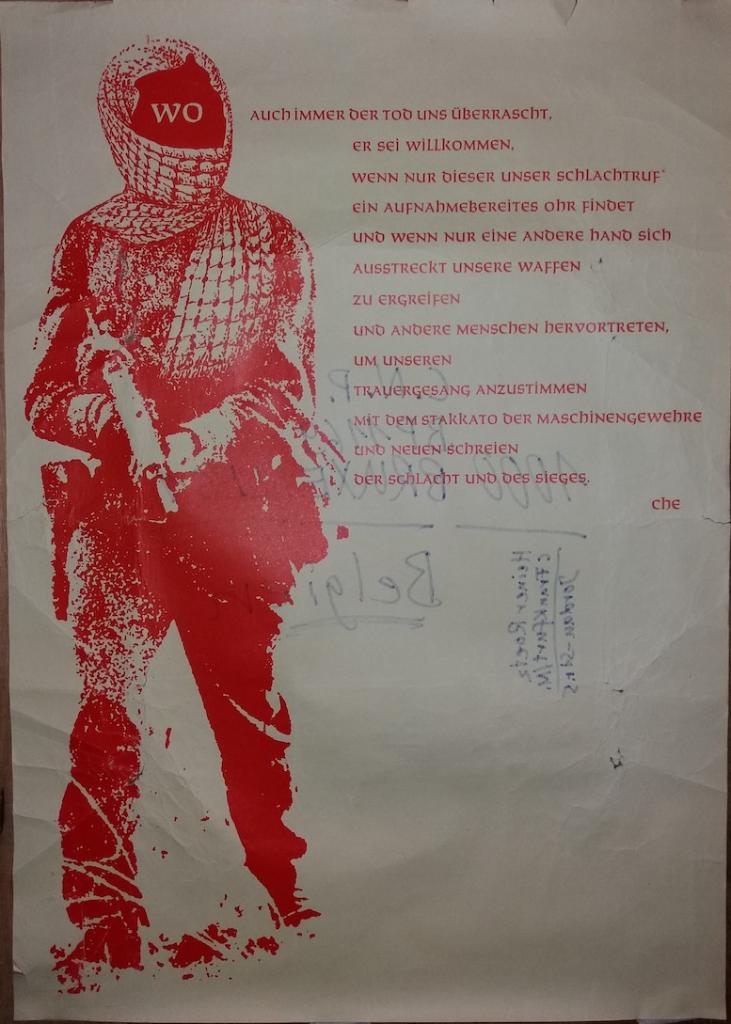 WO AUCH IMMER DER TOD UNS ÜBERRASCHT,
ER SEI WILLKOMMEN,
WENN NUR DIESER UNSER SCHLACHTRUF
EIN AUFNAHMEBEREITES OHR FINDET
UND WENN NUR EINE ANDERE HAND SICH
AUSSTRECKT UNSERE WAFFEN
ZU ERGREIFEN
UND ANDERE MENSCHEN HERVORTRETEN,
UM UNSEREN
TRAUERGESANG ANZUSTIMMEN
MIT DEM STAKKATO DER MASCHINENGEWEHRE
UND NEUEN SCHREIEN
DER SCHLACHT UND DES SIEGES.
CHE
1000